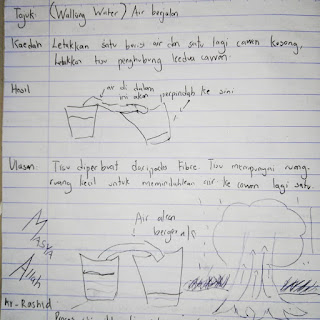 Tajuk: (Walking Water) Air berjalan
Kaedah Letakkan satu berisi air dan satu lagi cawan kosong.
Letakkan tisu penghubung kedua cawan.
Hasil air di dalam ini akan berpindah ke sini
Ulasan: Tisu diperbuat daripada Fibre. Tisu mempunyai ruang-
ruang kecil untuk memindahkan air ke cawan lagi satu.
Air akan
bergerak
Masya
Allah
Ar-Rashid